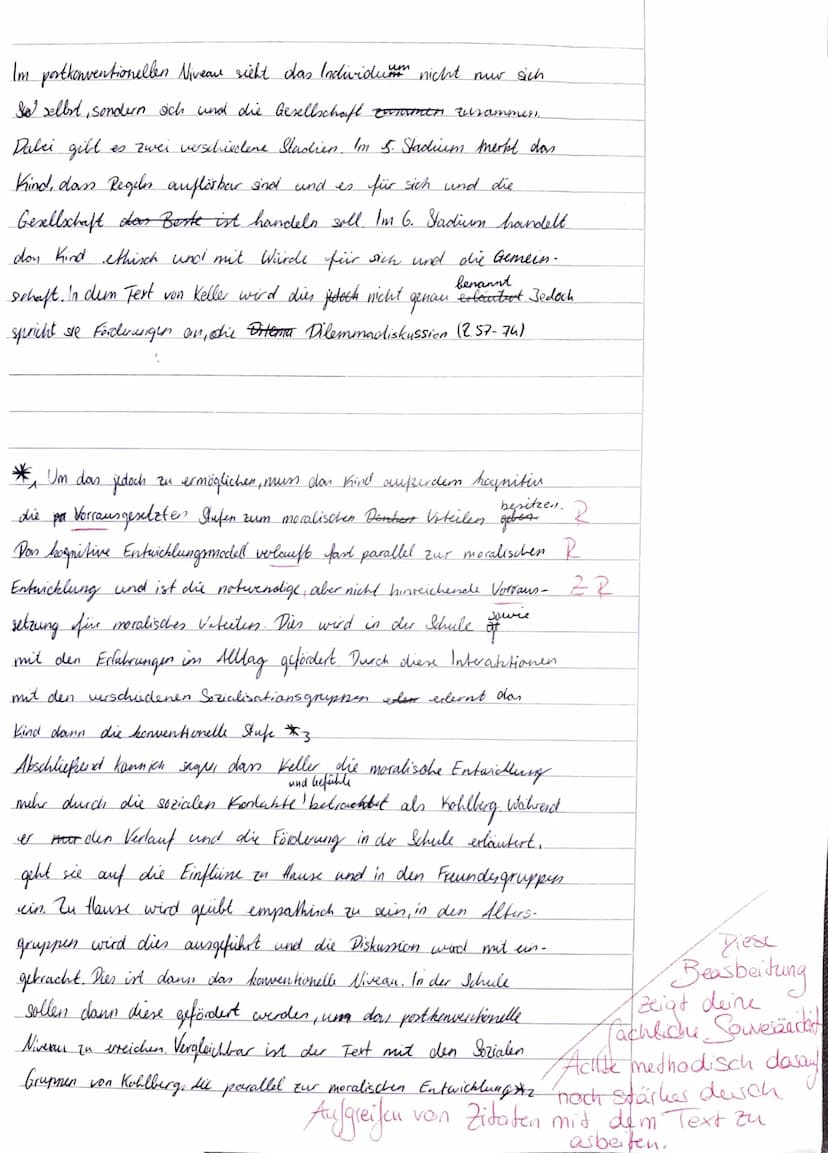 Im postkonventionellen Niveau sieht das Individuum nicht nur sich
selbst, sondern sich und die Gesellschaft zusammen zusammen.
Dabei gibt es zwei verschiedene Stadien. Im 5. Stadium merkt das
Kind, dass Regeln auflösbar sind und es für sich und die
Gesellschaft das Beste ist handeln soll. Im 6. Stadium handelt
das Kind ethisch und mit Würde für sich und die Gemein-
schaft. In dem Text von Keller wird dies jedoch nicht genau erläutert benannt Jedoch
spricht sie Förderungen an, die Dilemmadiskussion (Z 57-74)
*1 Um das jedoch zu ermöglichen, muss das Kind außerdem kognitiv
die Vorrausgesetzten Stufen zum moralischen Denken Urteilen geben besitzen. R
Das kognitive Entwicklungsmodell verlauft fast parallel zur moralischen R
Entwicklung und ist die notwendige, aber nicht hinreichende Vorraus- Z R
setzung für moralisches Urteilen. Dies wird in der Schule sowie
mit den Erfahrungen im Alltag gefördert. Durch diese Interaktionen
mit den verschiedenen Sozialisationsgruppen erlernt das
Kind dann die konventionelle Stufe *3
Abschließend kann ich sagen, dass Keller die moralische Entwicklung
mehr durch die sozialen Kontakte und Gefühle betrachtet als Kohlberg. Während
er nur den Verlauf und die Förderung in der Schule erläutert,
geht sie auf die Einflüsse zu Hause und in den Freundesgruppen
ein. Zu Hause wird geübt empathisch zu sein, in den Alters-
gruppen wird dies ausgeführt und die Diskussion wird mit ein-
gebracht. Dies ist dann das konventionelle Niveau. In der Schule
sollen dann diese gefördert werden, um das postkonventionelle
Niveau zu erreichen. Vergleichbar ist der Text mit den Sozialen
Gruppen von Kohlberg, die parallel zur moralischen Entwicklung *2
Diese
Bearbeitung
zeigt deine
fachliche Souveränität
Achte methodisch darauf
noch stärker durch
Aufgreifen von Zitaten mit dem Text zu
arbeiten.